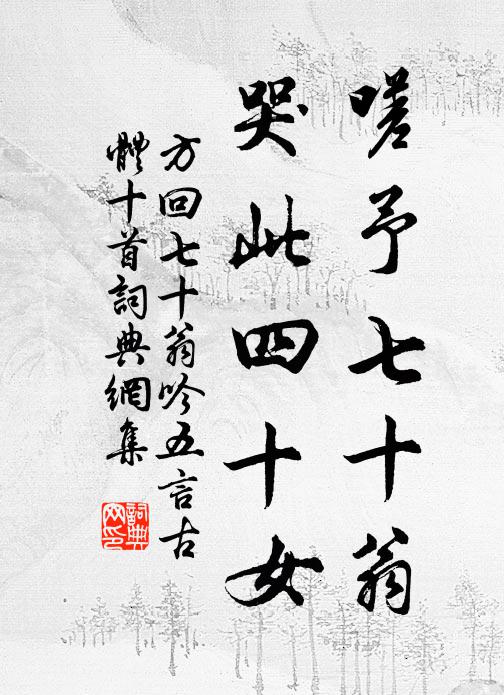 嗟予七十翁
哭此四十女
方回七十翁吟五言古
體十首詞典網集
詞典
网印